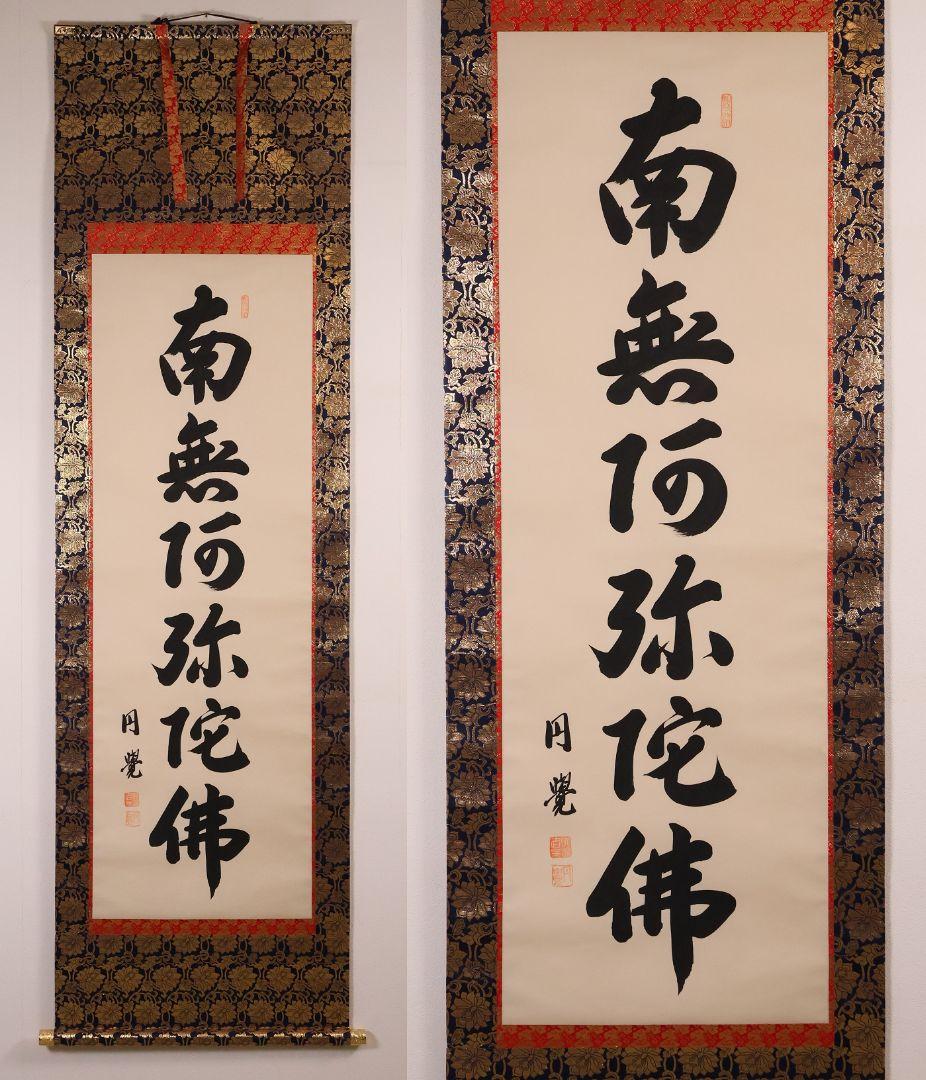 南無阿弥陀佛
円覺
南無阿弥陀佛
円覺